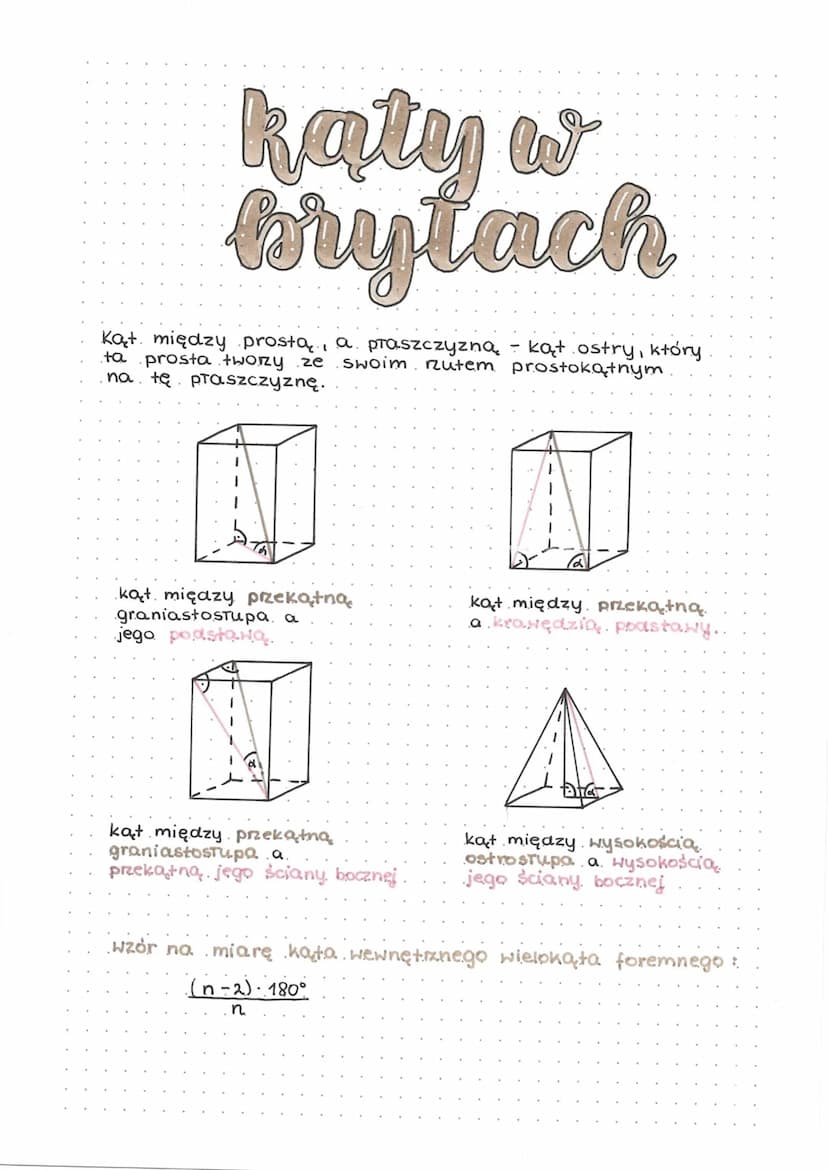 kąty w
bryłach
kąt między prostą, a płaszczyzną - kąt ostry, który
ta prosta tworzy ze swoim rzutem prostokątnym
na tę płaszczyznę.
α
α
kąt między przekątną
graniastosłupa a
jego podstawą
kąt między przekątną
a krawędzią podstawy.
α
α
kąt między przekątną
graniastosłupa a
przekątną jego ściany bocznej
kąt między wysokością
ostrosłupa a wysokością
jego ściany bocznej
wzór na miarę kąta wewnętrznego wielokąta foremnego:
(n-2)·180°
n